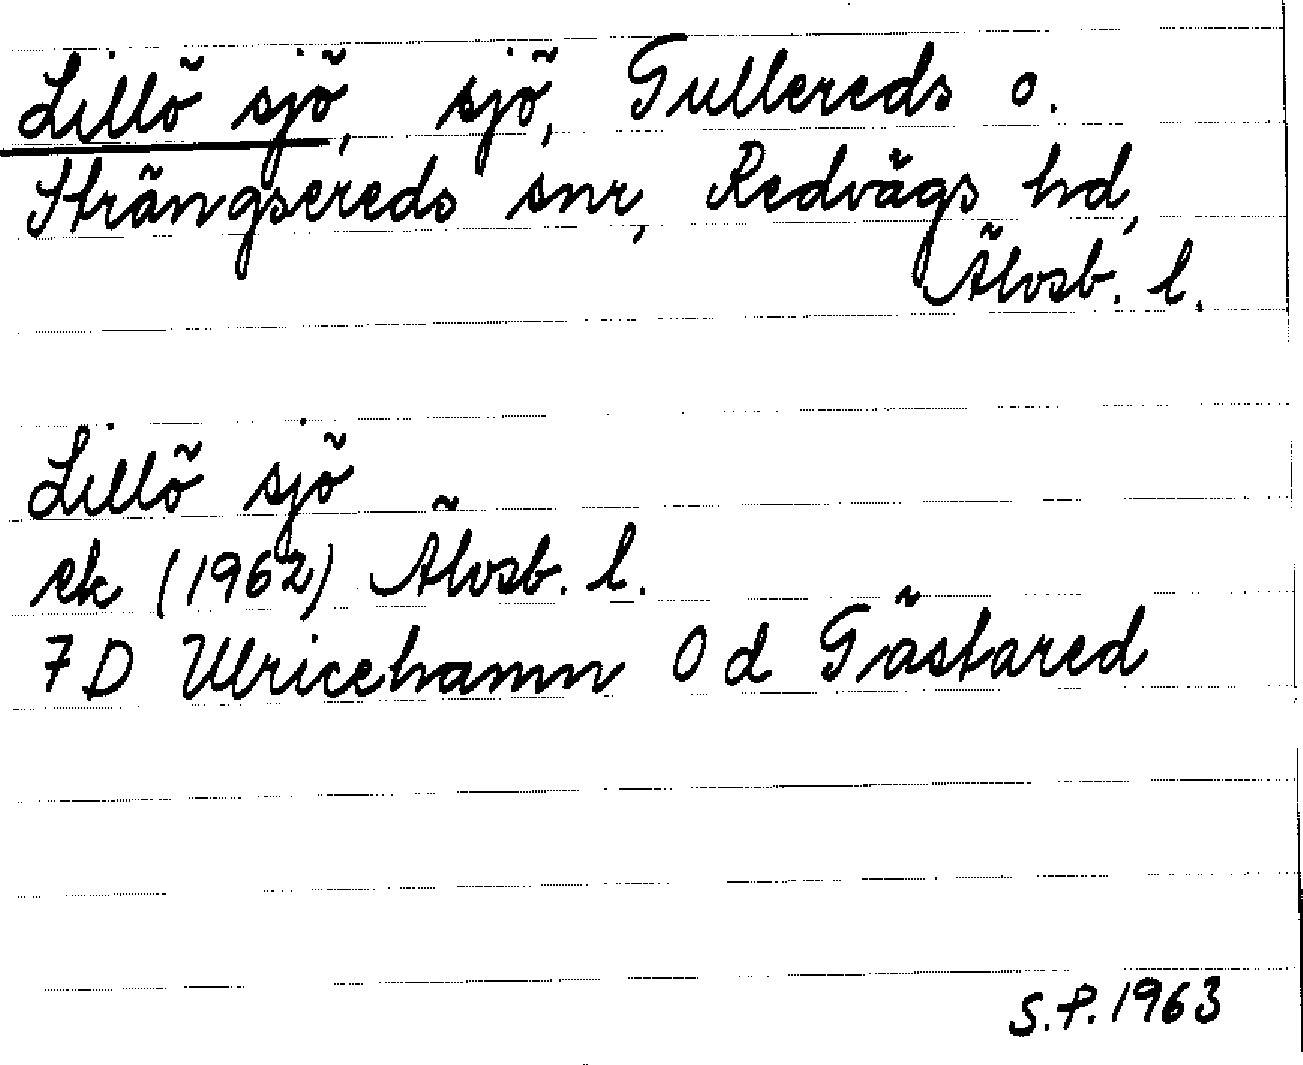 Lillö sjö, sjö, Gullereds o.
Strängsereds snr, Redvägs hd,
Älvsb. l.
Lillö sjö
ek (1962) Älvsb. l.
7 D Ulricehamn 0 d Gästared
S.P. 1963